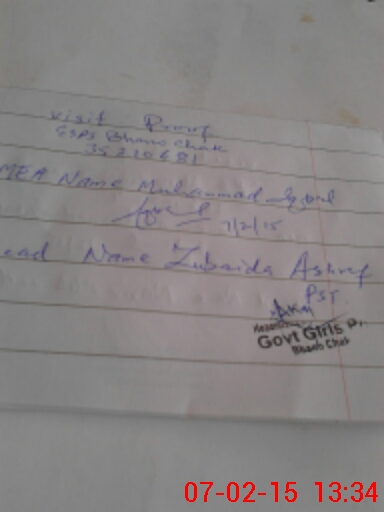 Visit Proof
GGPS Bhano Chak
35210681
MEA Name Muhammad Iqbal
7/2/15
ead Name Zubaida Ashraf
PST
Govt Girls P.
Bhano Chak
07-02-15 13:34